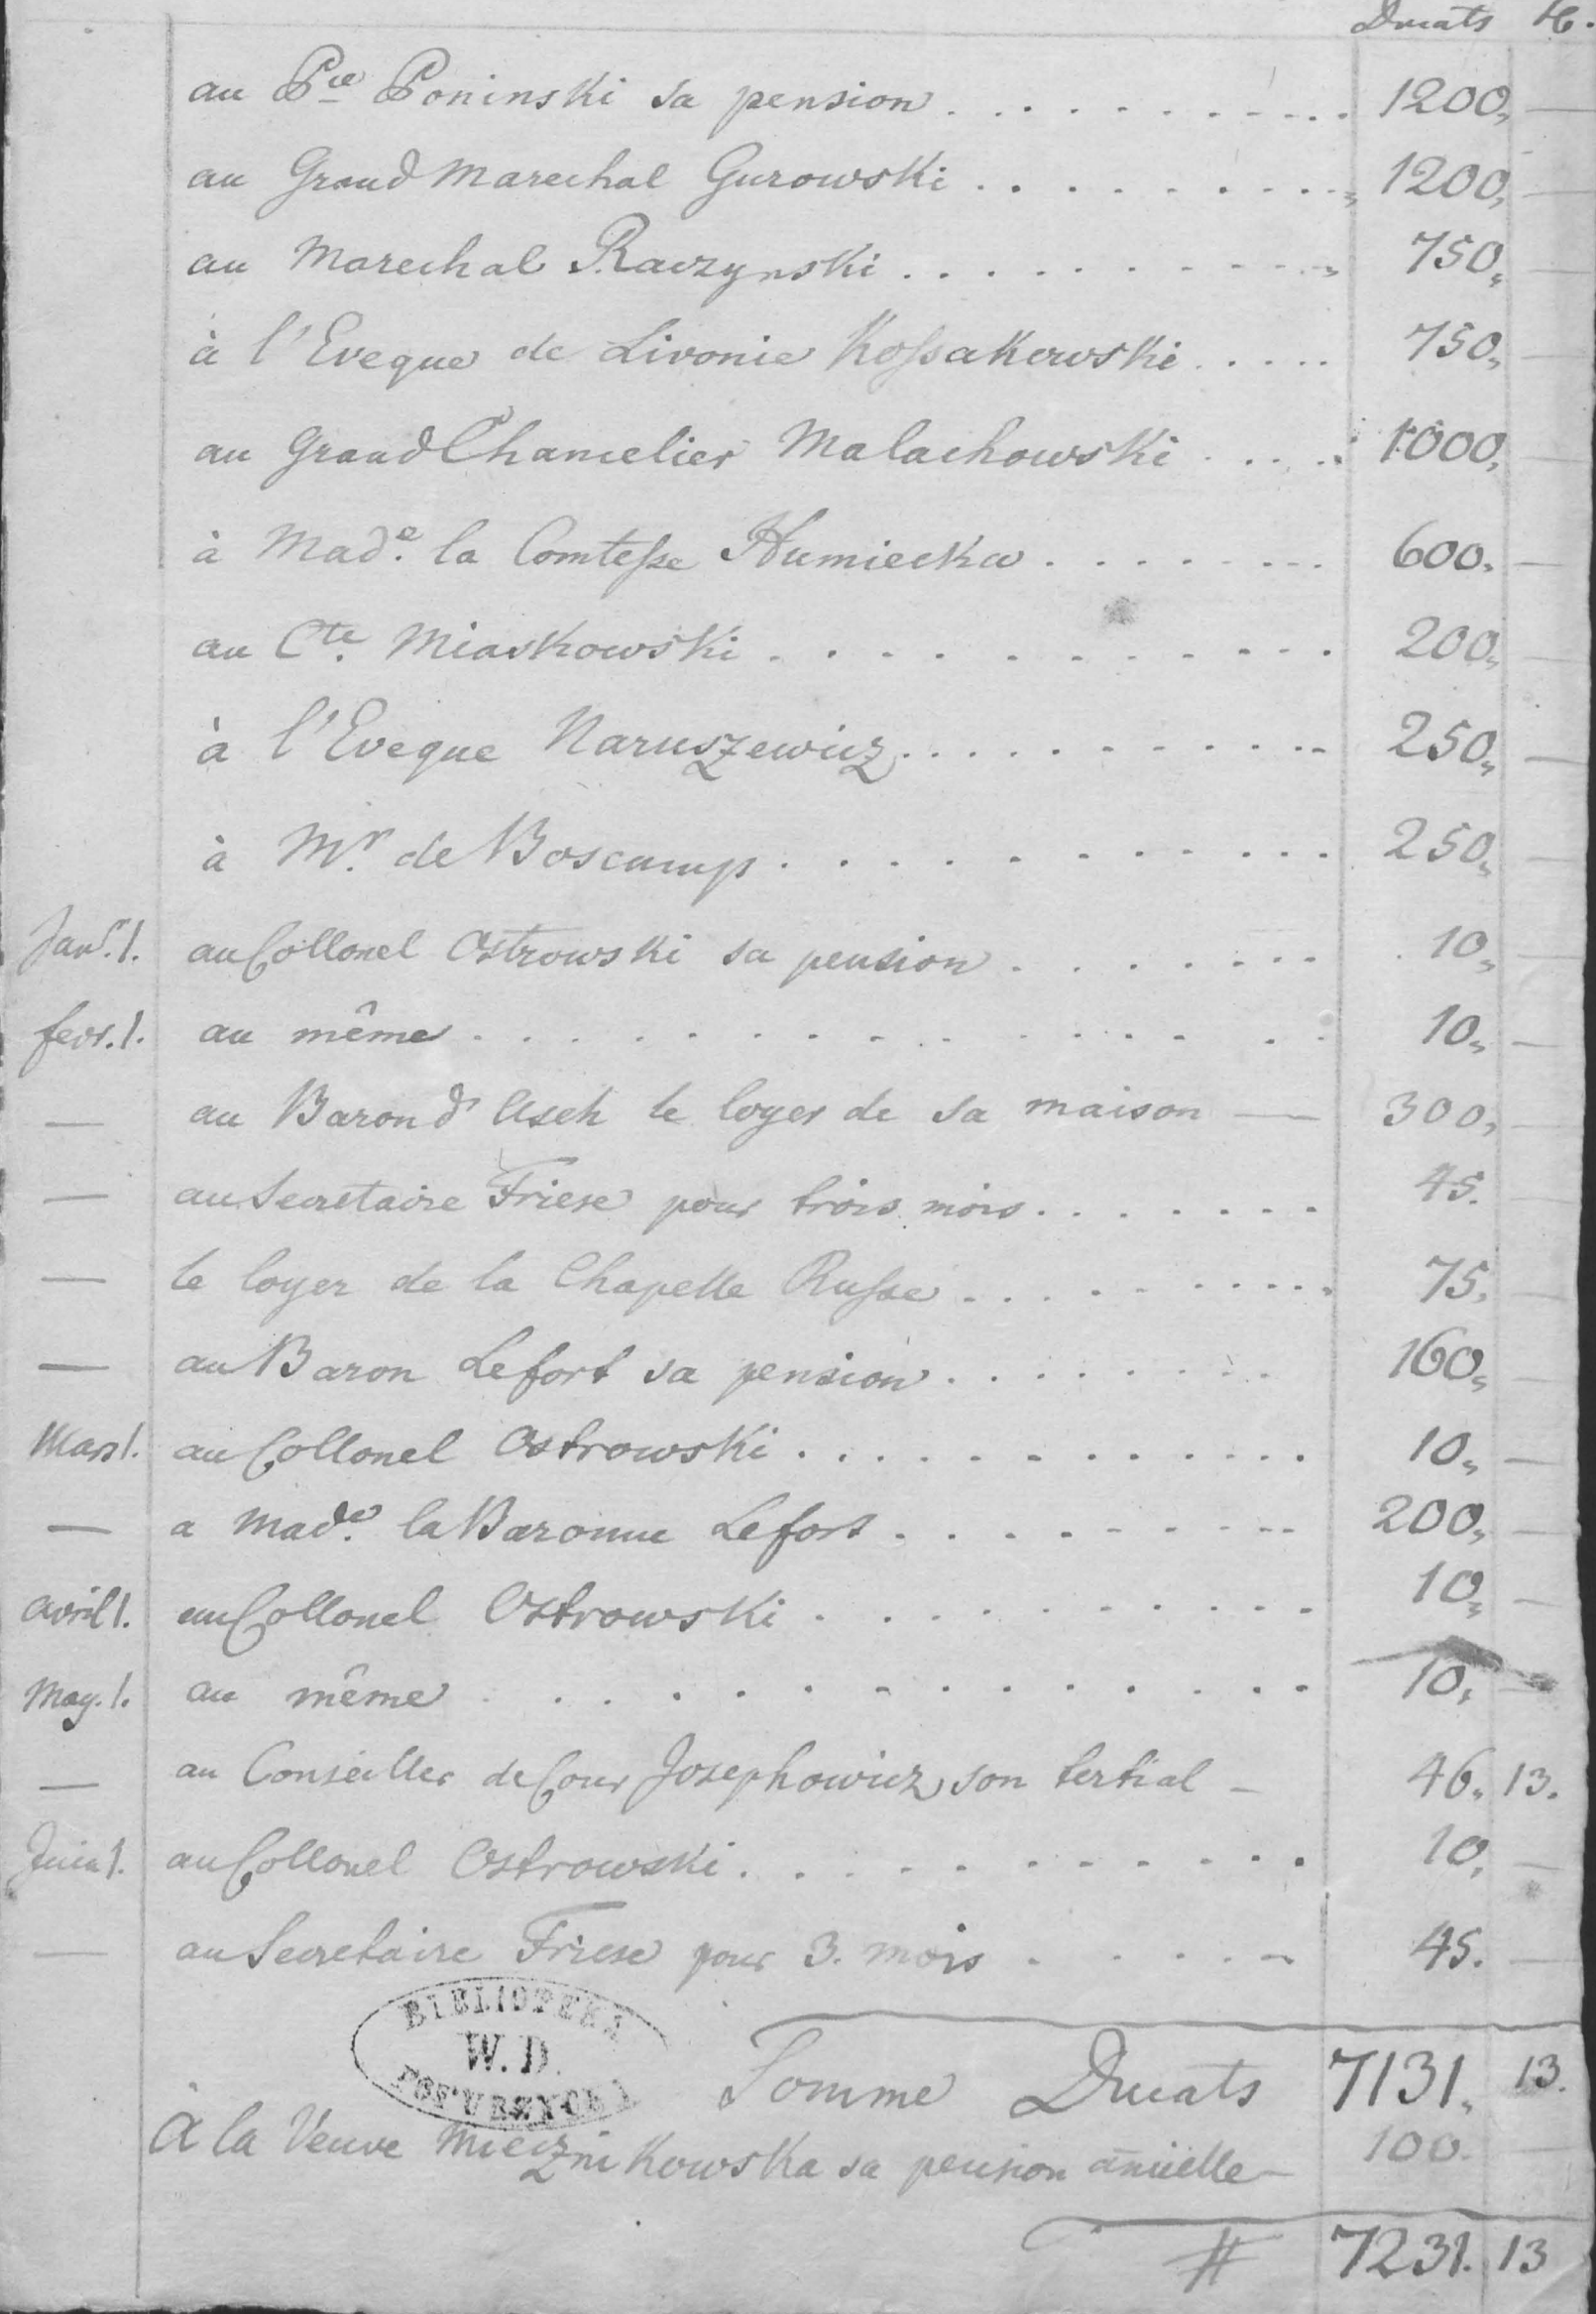 Ducats
au Pce Poninski sa pension . . . . . . . . . . 1200, —
au Grand Marechal Gurowski . . . . . . . . . 1200, —
au Marechal Raczynski . . . . . . . . . . 750, —
à l'Eveque de Livonie Kossakowski . . . . . 750, —
au Grand Chancelier Malachowski . . . . 1000, —
à Made. la Comtesse Humiecka . . . . . . . . 600. —
au Cte. Miaskowski . . . . . . . . . . . . 200, —
à l'Eveque Naruszewicz . . . . . . . . . . 250, —
à Mr. de Boscamp . . . . . . . . . . . . 250, —
Janr. 1. au Collonel Ostrowski sa pension . . . . . . . . 10, —
fevr. 1. au même . . . . . . . . . . . . . . 10, —
— au Baron d'Asch le loyer de sa maison — 300, —
— au Secretaire Friese pour trois mois . . . . . . . 45. —
— le loyer de la Chapelle Russe . . . . . . . . . 75. —
— au Baron Lefort sa pension . . . . . . . . 160, —
Mars 1. au Collonel Ostrowski . . . . . . . . . . . . 10, —
— a Made. la Baronne Lefort . . . . . . . . . 200, —
avril 1. au Collonel Ostrowski . . . . . . . . . . 10, —
May. 1. au même . . . . . . . . . . . . . . 10, —
— au Conseiller de Cour Josephowicz son tertial — 46. 13.
Juin 1. au Collonel Ostrowski . . . . . . . . . . . 10, —
— au Secretaire Friese pour 3. mois . . . . . 45. —
BIBLIOTEKA
W. D.
Somme Ducats 7131. 13.
A la Veuve Miecznikowska sa pension anüelle — 100. —
# 7231. 13